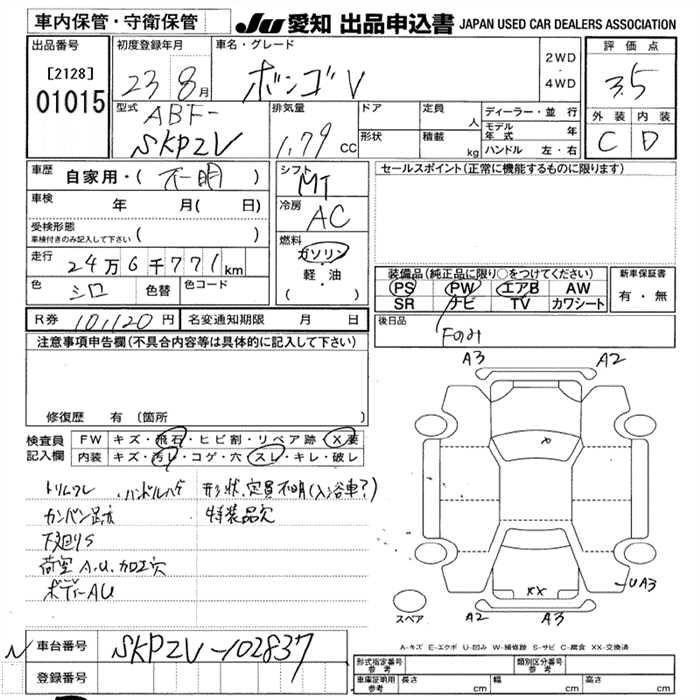 車内保管・守衛保管
JU 愛知 出品申込書 JAPAN USED CAR DEALERS ASSOCIATION
出品番号
[2128]
01015
初度登録年月
23 8月
車名・グレード
ボンゴV
2WD
・
4WD
評価点
3.5
外装 内装
C D
型式 ABF-
SKP2V
排気量
1.79 CC
ドア
形状
定員 人
積載 kg
ディーラー・並行
モデル年式 年
ハンドル 左・右
車歴 自家用・(不明)
車検 年 月( 日)
受検形態
車検付きのみ記入して下さい ( )
走行 24万6千771km
色 シロ 色替 色コード
シフト
MT
冷房
AC
燃料
ガソリン
・
軽・油
セールスポイント(正常に機能するものに限ります)
装備品(純正品に限り○をつけてください)
PS PW エアB AW
SR ナビ TV カワシート
新車保証書
有・無
R券 10,120円 名変通知期限 月 日
後日品
Fのみ
注意事項申告欄(不具合内容等は具体的に記入して下さい)
修復歴 有(箇所 )
検査員記入欄
FW キズ・飛石・ヒビ割・リペア跡・X要
内装 キズ・汚レ・コゲ・穴・スレ・キレ・破レ
トリムワレ ・ハンドルハゲ 形状、定員不明(入浴車?)
カンバン跡 特装品欠
下廻りS
荷室 A.U.加工穴
ボディーAU
A3 A2
X
XX
UA3
スペア
A2 A3
A-キズ E-エクボ U-凹み W-補修跡 S-サビ C-腐食 XX-交換済
車台番号 SKP2V-102837
登録番号
形式指定番号 参考 類別区分番号 参考
車庫証明用 参考 長さ cm 幅 cm 高さ cm